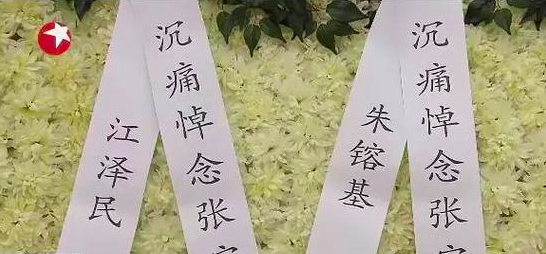 沉痛悼念张
江泽民
沉痛悼念张
朱镕基